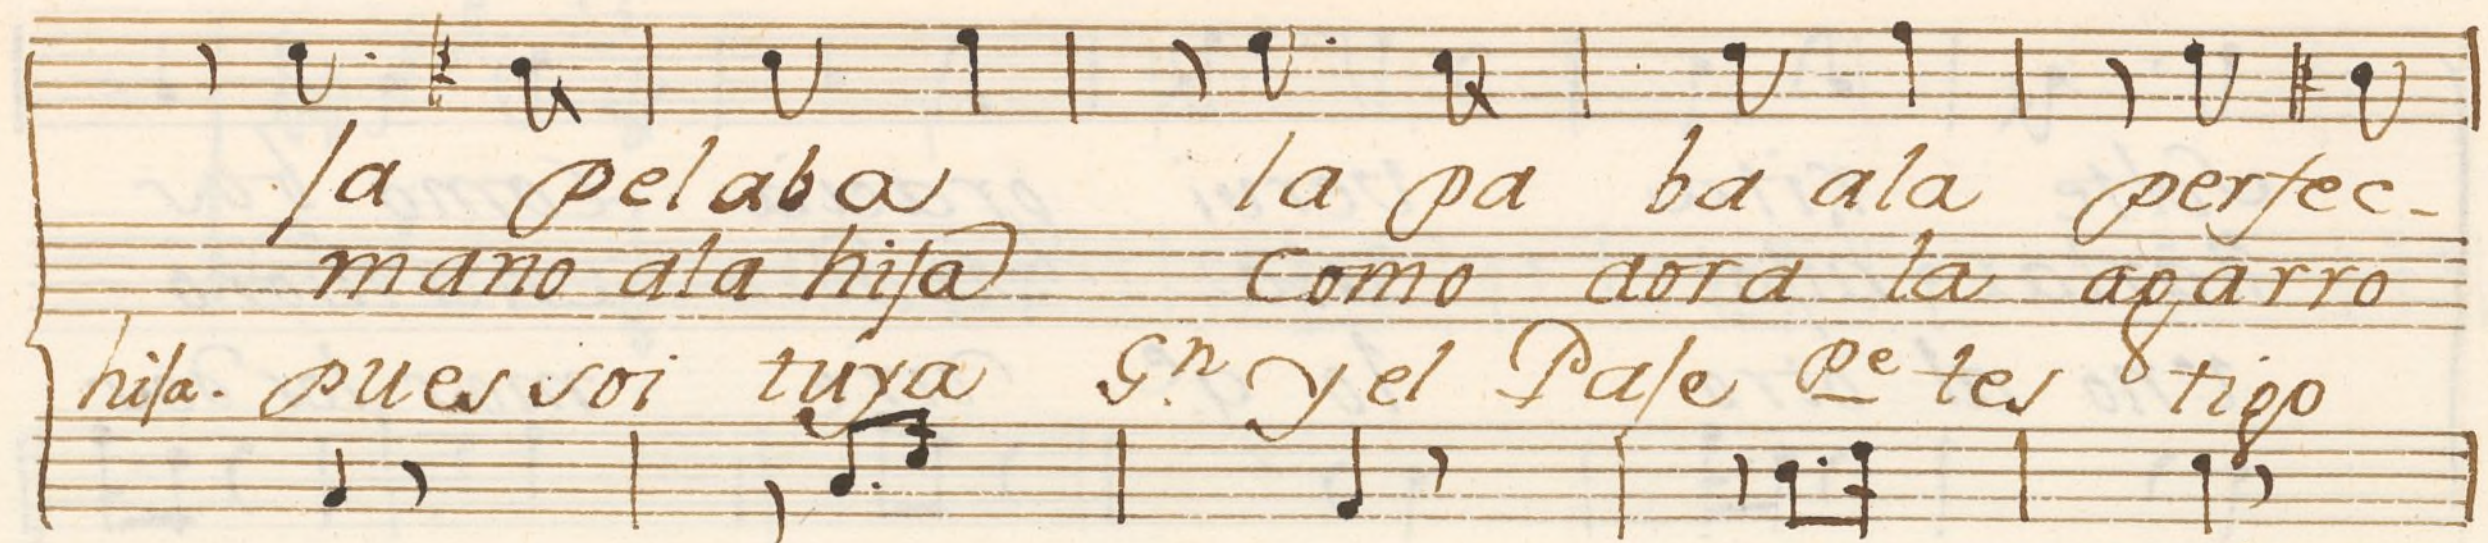 la pelaba la pa ba ala perfec-
mano ala hija como dora la agarro
hija. pues soi tuya Gn. y el Paje Pe tes tigo